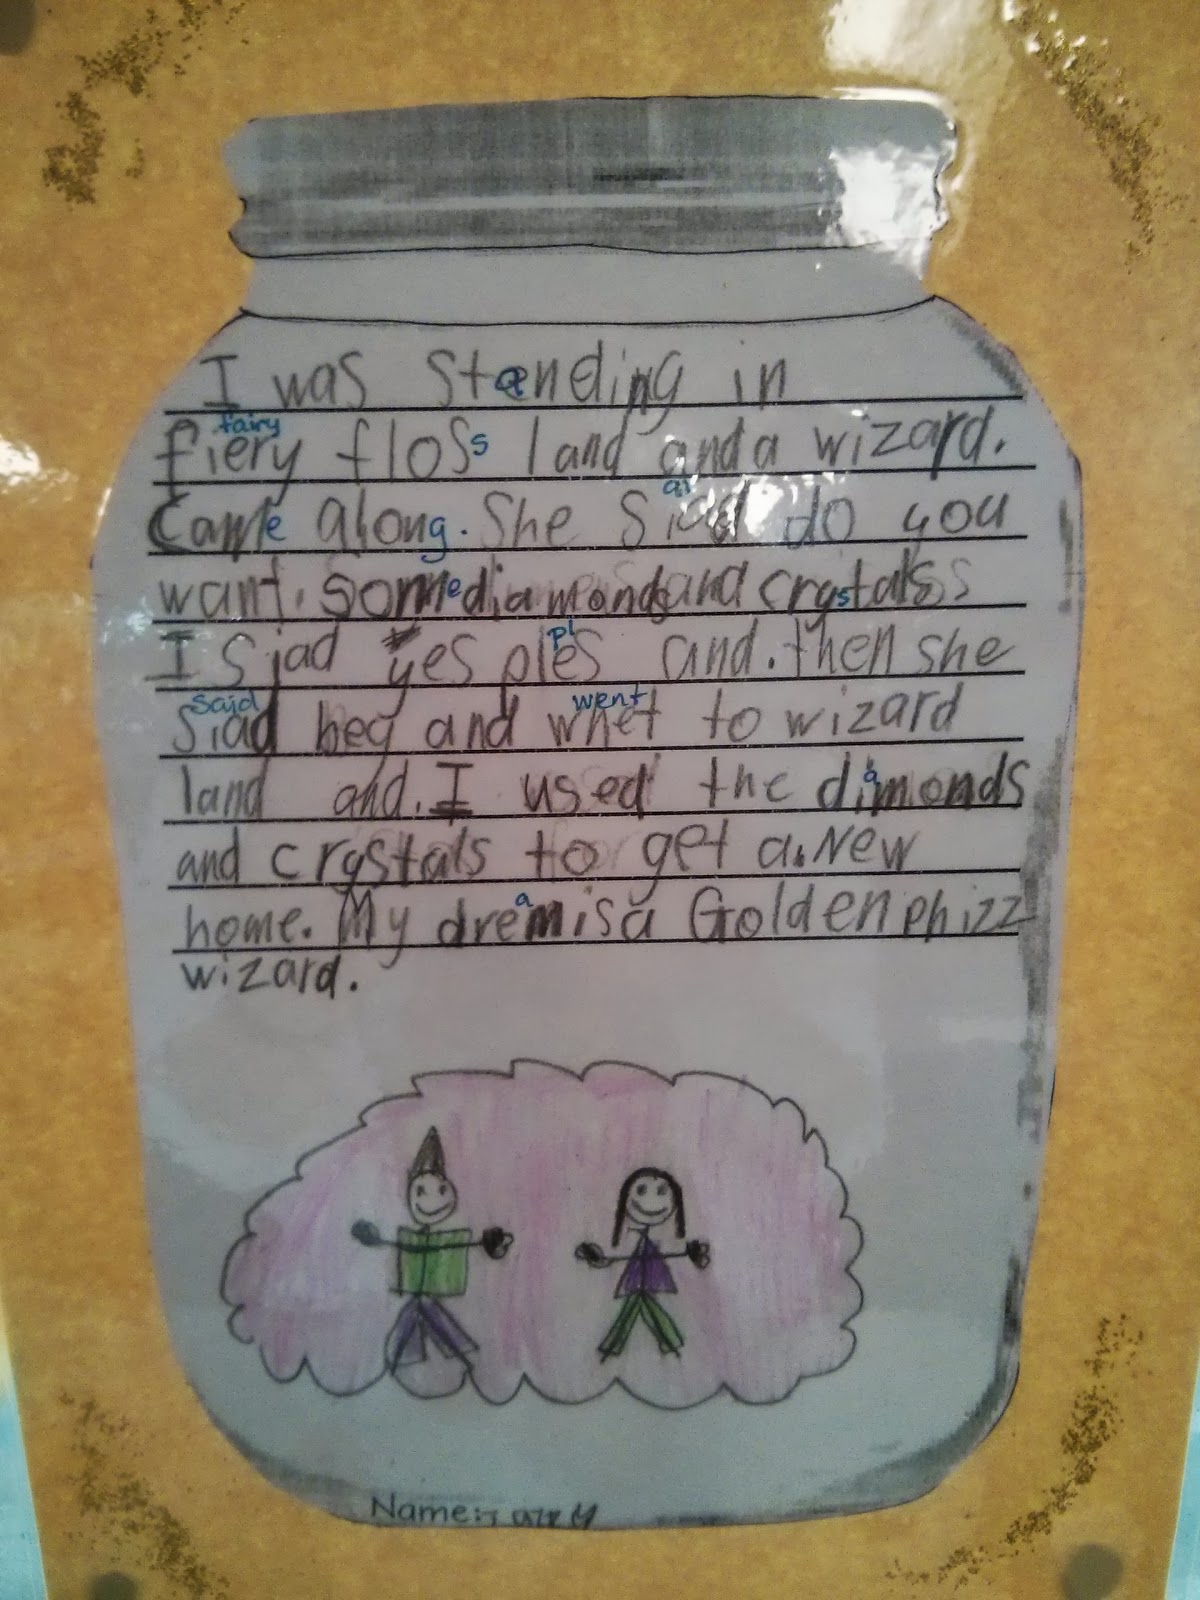 I was standing in
fairy
fiery floss land and a wizard.
Came along. She siad do you
ai
want. some diamonds and crystals
I siad yes ples and. then she
pl
said went
Siad bey and whet to wizard
land and. I used the diamonds
and crystals to get a. New
home. My dream is a Golden phizz
wizard.
Name: